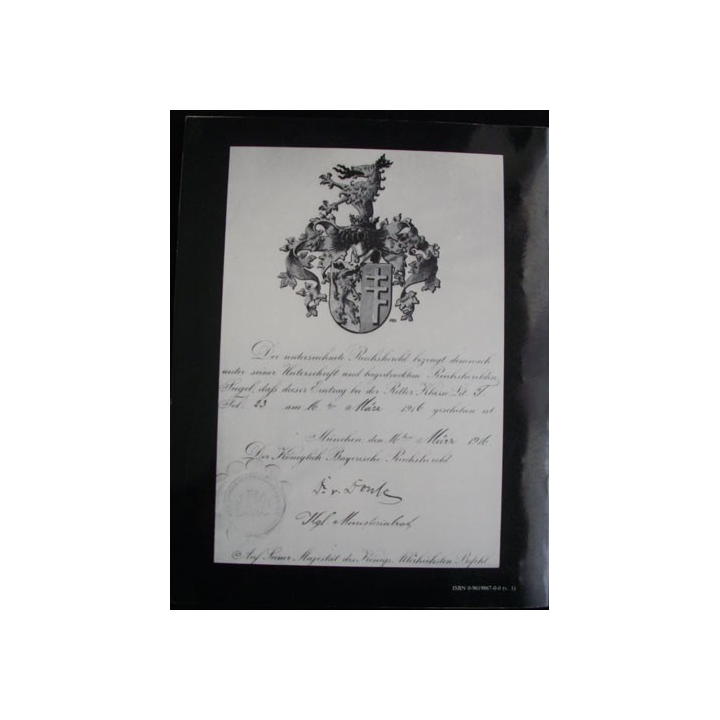 Der unterzeichnete Reichsherold bezeugt demnach
unter seiner Unterschrift und beigedrucktem Reichsherolden
Siegel, daß dieser Eintrag bei der Ritter Klasse Lit. T
Fol. 23 am 16ten März 1916 geschehen ist
München, den 16ten März 1916.
Der Königlich Bayerische Reichsherold
Kgl. Ministerialrat
Auf Seiner Majestät des Königs Allerhöchsten Befehl.
ISBN 0-9619867-0-0 (v. 1)